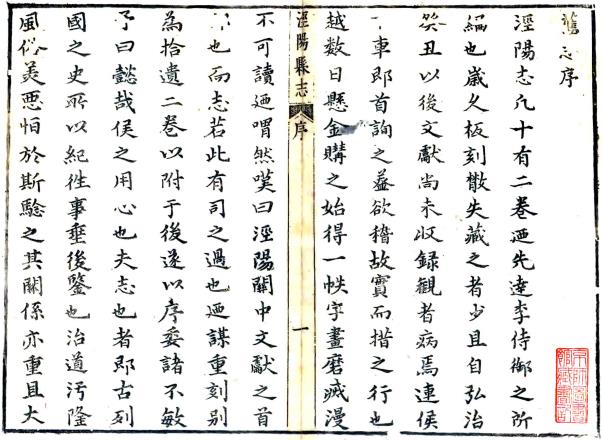 舊志序
涇陽志凡十有二卷廼先達李侍御之所
編也歲久板刻散失藏之者少且自弘治
癸丑以後文獻尚未收録觀者病焉連侯
下車即首詢之葢欲稽故實而措之行也
越数日懸金購之始得一帙字畫磨滅漫
涇陽縣志 序 一
不可讀廼喟然嘆曰涇陽關中文獻之首
也而志若此有司之過也廼謀重刻别
為拾遺二巻以附于後遂以序委諸不敏
予曰懿哉侯之用心也夫志也者即古列
國之史所以紀徃事垂後鑒也治道汚隆
風俗美惡恒於斯騐之其關係亦重且大